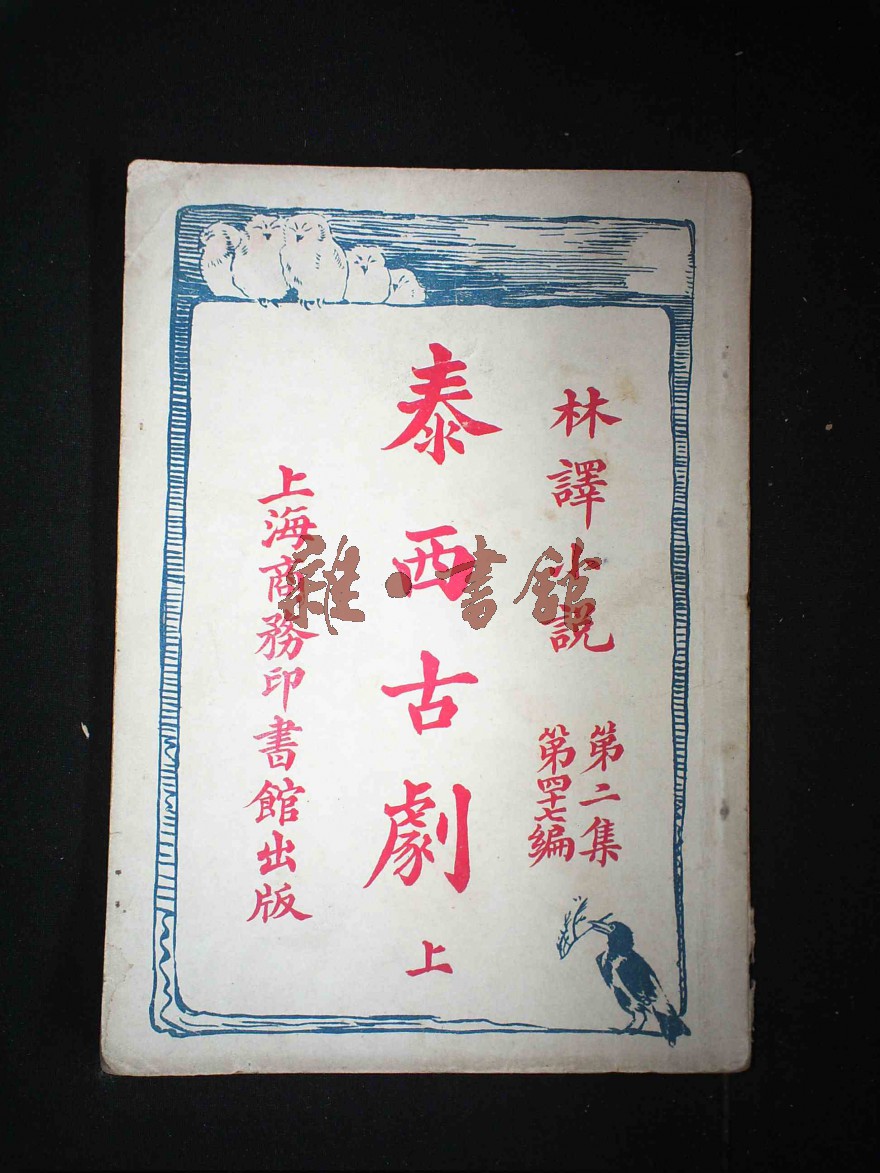 林譯小説
第二集
第四十七編
泰西古劇 上
上海商務印書館出版
雜·書館